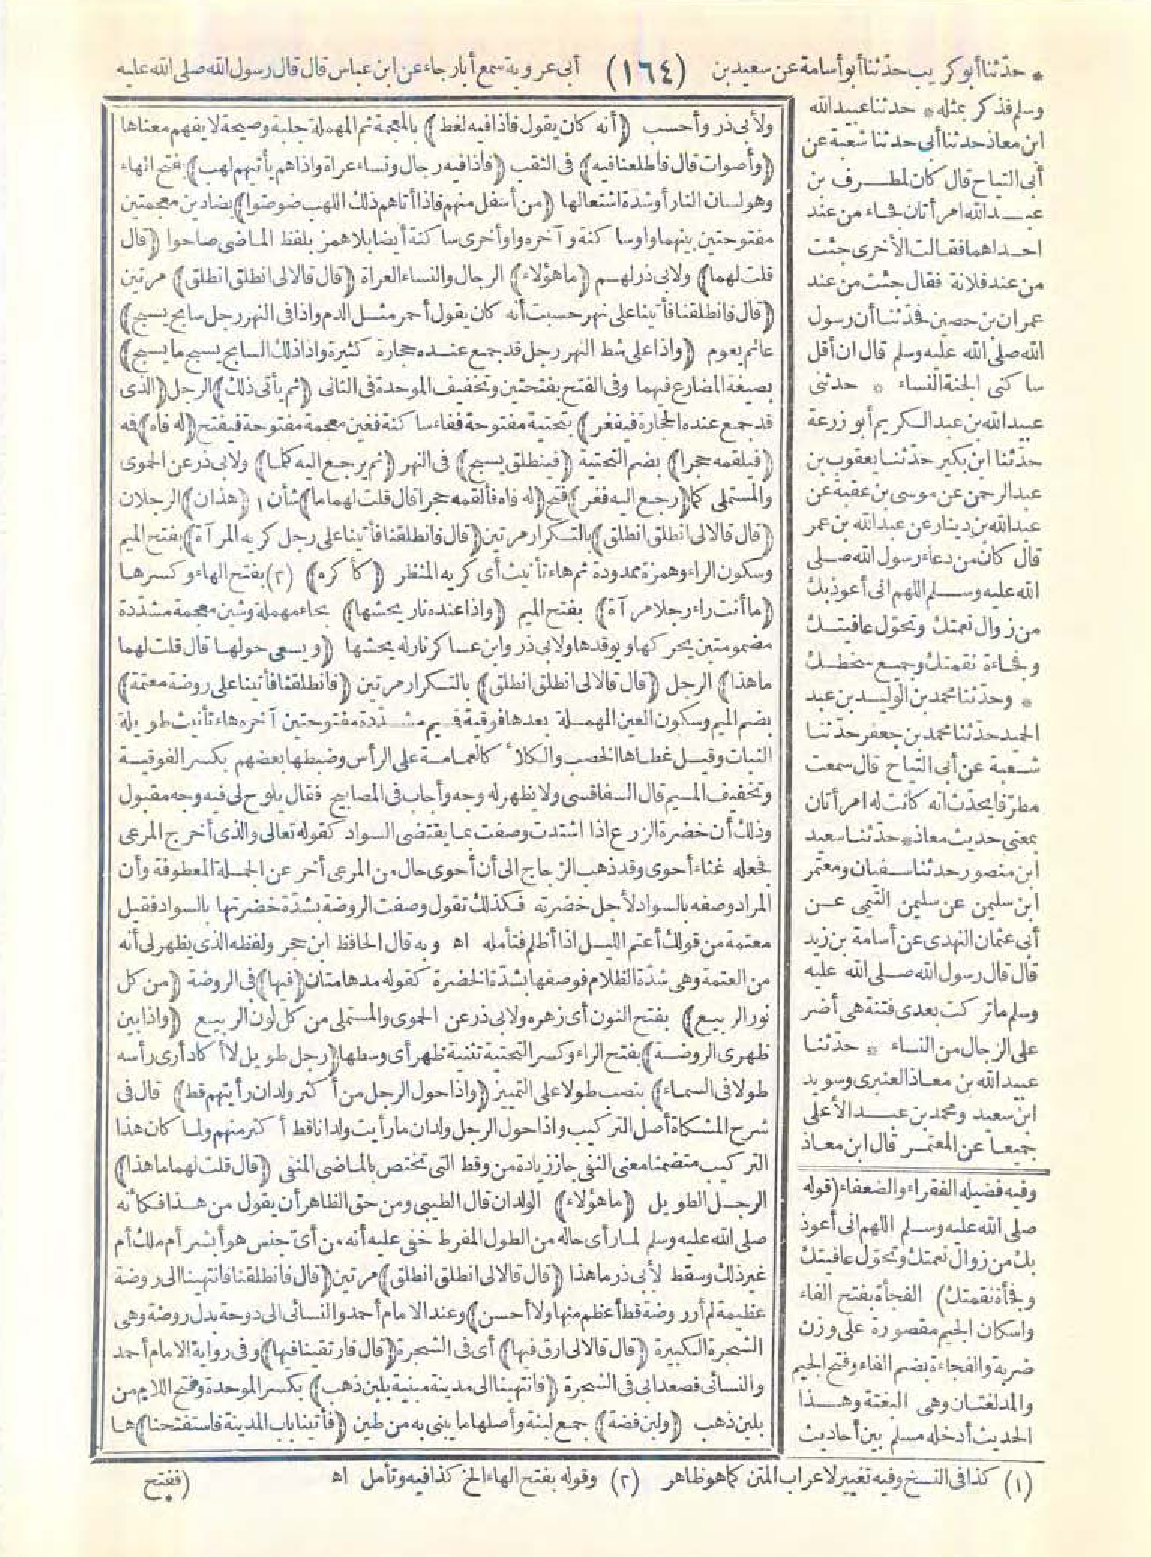 * حدثنا أبو كريب حدثنا أبو أسامة عن سعيد بن (١٦٤) أبي عروبة سمع أبا رجاء عن ابن عباس قال قال رسول الله صلى الله عليه
وسلم فذكر بمثله * حدثنا عبيد الله
ابن معاذ حدثنا أبي حدثنا شعبة عن
أبي التياح قال كان لمطرف بن
عبد الله امرأتان فجاء من عند
احداهما فقالت الأخرى جئت
من عند فلانة فقال جئت من عند
عمران بن حصين فحدثنا أن رسول
الله صلى الله عليه وسلم قال ان أقل
ساكني الجنة النساء * حدثني
عبيد الله بن عبد الكريم أبو زرعة
حدثنا ابن بكير حدثنا يعقوب بن
عبد الرحمن عن موسى بن عقبة عن
عبد الله بن دينار عن عبد الله بن عمر
قال كان من دعاء رسول الله صلى
الله عليه وسلم اللهم اني أعوذ بك
من زوال نعمتك وتحول عافيتك
وفجاءة نقمتك وجميع سخطك
* وحدثنا محمد بن الوليد بن عبد
الحميد حدثنا محمد بن جعفر حدثنا
شعبة عن أبي التياح قال سمعت
مطرفا يحدث انه كانت له امرأتان
بمعنى حديث معاذ * حدثنا سعيد
ابن منصور حدثنا سفيان ومعتمر
ابن سليمن عن سليمن التيمي عن
أبي عثمان النهدي عن أسامة بن زيد
قال قال رسول الله صلى الله عليه
وسلم ما تركت بعدي فتنة هي أضر
على الرجال من النساء * حدثنا
عبيد الله بن معاذ العنبري وسويد
ابن سعيد ومحمد بن عبد الأعلى
جميعا عن المعتمر قال ابن معاذ
وفيه فضيلة الفقراء والضعفاء (قوله
صلى الله عليه وسلم اللهم اني أعوذ
بك من زوال نعمتك وتحول عافيتك
وفجأة نقمتك) الفجأة بفتح الفاء
واسكان الجيم مقصورة على وزن
ضربة والفجاءة بضم الفاء وفتح الجيم
والمد لغتان وهي البغتة وهذا
الحديث أدخله مسلم بين أحاديث
ولأبي ذر وأحسب (أنه كان يقول فاذا فيه لغط) بالمعجمة ثم المهملة جلبة وصيحة لا يفهم معناها
(وأصوات قال فاطلعنا فيه) في الثقب (فاذا فيه رجال ونساء عراة واذا هم يأتيهم لهب) بفتح الهاء
وهو لسان النار أو شدة اشتعالها (من أسفل منهم فاذا أتاهم ذلك اللهب ضوضوا) بضادين معجمتين
مفتوحتين بينهما واو ساكنة وآخره واو أخرى ساكنة أيضا بلا همز بلفظ الماضي صاحوا (قال
قلت لهما) ولأبي ذر لهم (ما هؤلاء) الرجال والنساء العراة (قال قالا لي انطلق انطلق) مرتين
(قال فانطلقنا فأتينا على نهر حسبت أنه كان يقول أحمر مثل الدم واذا في النهر رجل سابح يسبح)
عائم يعوم (واذا على شط النهر رجل قد جمع عنده حجارة كثيرة واذا ذلك السابح يسبح ما يسبح)
بصيغة المضارع فيهما وفي الفتح بفتحتين وتخفيف الموحدة في الثاني (ثم يأتي ذلك) الرجل (الذي
قد جمع عنده الحجارة فيفغر) بتحتية مفتوحة ففاء ساكنة فغين معجمة مفتوحة فيفتح (له فاه) فه
(فيلقمه حجرا) بضم التحتية (فينطلق يسبح) في النهر (ثم يرجع اليه كلما) ولأبي ذر عن الحموي
والمستملي كما (رجع اليه فغر) فتح (له فاه فألقمه حجرا قال قلت لهما ما) شأن ١ (هذان) الرجلان
(قال قالا لي انطلق انطلق) بالتكرار مرتين (قال فانطلقنا فأتينا على رجل كريه المرآة) بفتح الميم
وسكون الراء وهمزة ممدودة ثم هاء تأنيث أي كريه المنظر (كأكره) (٢) بفتح الهاء وكسرها
(ما أنت راء رجلا مرآة) بفتح الميم (واذا عنده نار يحشها) بحاء مهملة وشين معجمة مشددة
مضمومتين يحركها ويوقدها ولأبي ذر وابن عساكر نار له يحشها (ويسعى حولها قال قلت لهما
ما هذا) الرجل (قال قالا لي انطلق انطلق) بالتكرار مرتين (فانطلقنا فأتينا على روضة معتمة)
بضم الميم وسكون العين المهملة بعدها فوقية فميم مشددة مفتوحتين آخره هاء تأنيث طويلة
النبات وقيل غطاها الخصب والكلأ كالعمامة على الرأس وضبطها بعضهم بكسر الفوقية
وتخفيف الميم قال السفاقسي ولا يظهر له وجه وأجاب في المصابيح فقال يلوح لي فيه وجه مقبول
وذلك أن خضرة الزرع اذا اشتدت وصفت بما يقتضي السواد كقوله تعالى والذي أخرج المرعى
فجعله غثاء أحوى وقد ذهب الزجاج الى أن أحوى حال من المرعى أخر عن الجملة المعطوفة وأن
المراد وصفه بالسواد لأجل خضرته فكذلك تقول وصفت الروضة بشدة خضرتها بالسواد فقيل
معتمة من قولك أعتم الليل اذا أظلم فتأمله اه وبه قال الحافظ ابن حجر ولفظه الذي يظهر لي أنه
من العتمة وهي شدة الظلام فوصفها بشدة الخضرة كقوله مدهامتان (فيها) في الروضة (من كل
نور الربيع) بفتح النون أي زهره ولأبي ذر عن الحموي والمستملي من كل لون الربيع (واذا بين
ظهري الروضة) بفتح الراء وكسر التحتية تثنية ظهر أي وسطها (رجل طويل لا أكاد أرى رأسه
طولا في السماء) بنصب طولا على التمييز (واذا حول الرجل من أكثر ولدان رأيتهم قط) قال في
شرح المشكاة أصل التركيب واذا حول الرجل ولدان ما رأيت ولدانا قط أكثر منهم ولما كان هذا
التركيب متضمنا معنى النفي جاز زيادة من وقط التي تختص بالماضي المنفي (قال قلت لهما ما هذا)
الرجل الطويل (ما هؤلاء) الولدان قال الطيبي ومن حق الظاهر أن يقول من هذا فكأنه
صلى الله عليه وسلم لما رأى حاله من الطول المفرط خفي عليه أنه من أي جنس هو أبشر أم ملك أم
غير ذلك وسقط لأبي ذر ما هذا (قال قالا لي انطلق انطلق) مرتين (قال فانطلقنا فانتهينا الى روضة
عظيمة لم أر روضة قط أعظم منها ولا أحسن) وعند الامام أحمد والنسائي الى دوحة بدل روضة وهي
الشجرة الكبيرة (قال قالا لي ارق فيها) أي في الشجرة (قال فارتقينا فيها) وفي رواية الامام أحمد
والنسائي فصعدا بي في الشجرة (فانتهينا الى مدينة مبنية بلبن ذهب) بكسر الموحدة وفتح اللام من
بلبن ذهب (ولبن فضة) جمع لبنة وأصلها ما يبنى به من طين (فأتينا باب المدينة فاستفتحنا) ها
(١) كذا في النسخ وفيه تغيير لاعراب المتن كما هو ظاهر (٢) وقوله بفتح الهاء الخ كذا فيه وتأمل اه
(ففتح